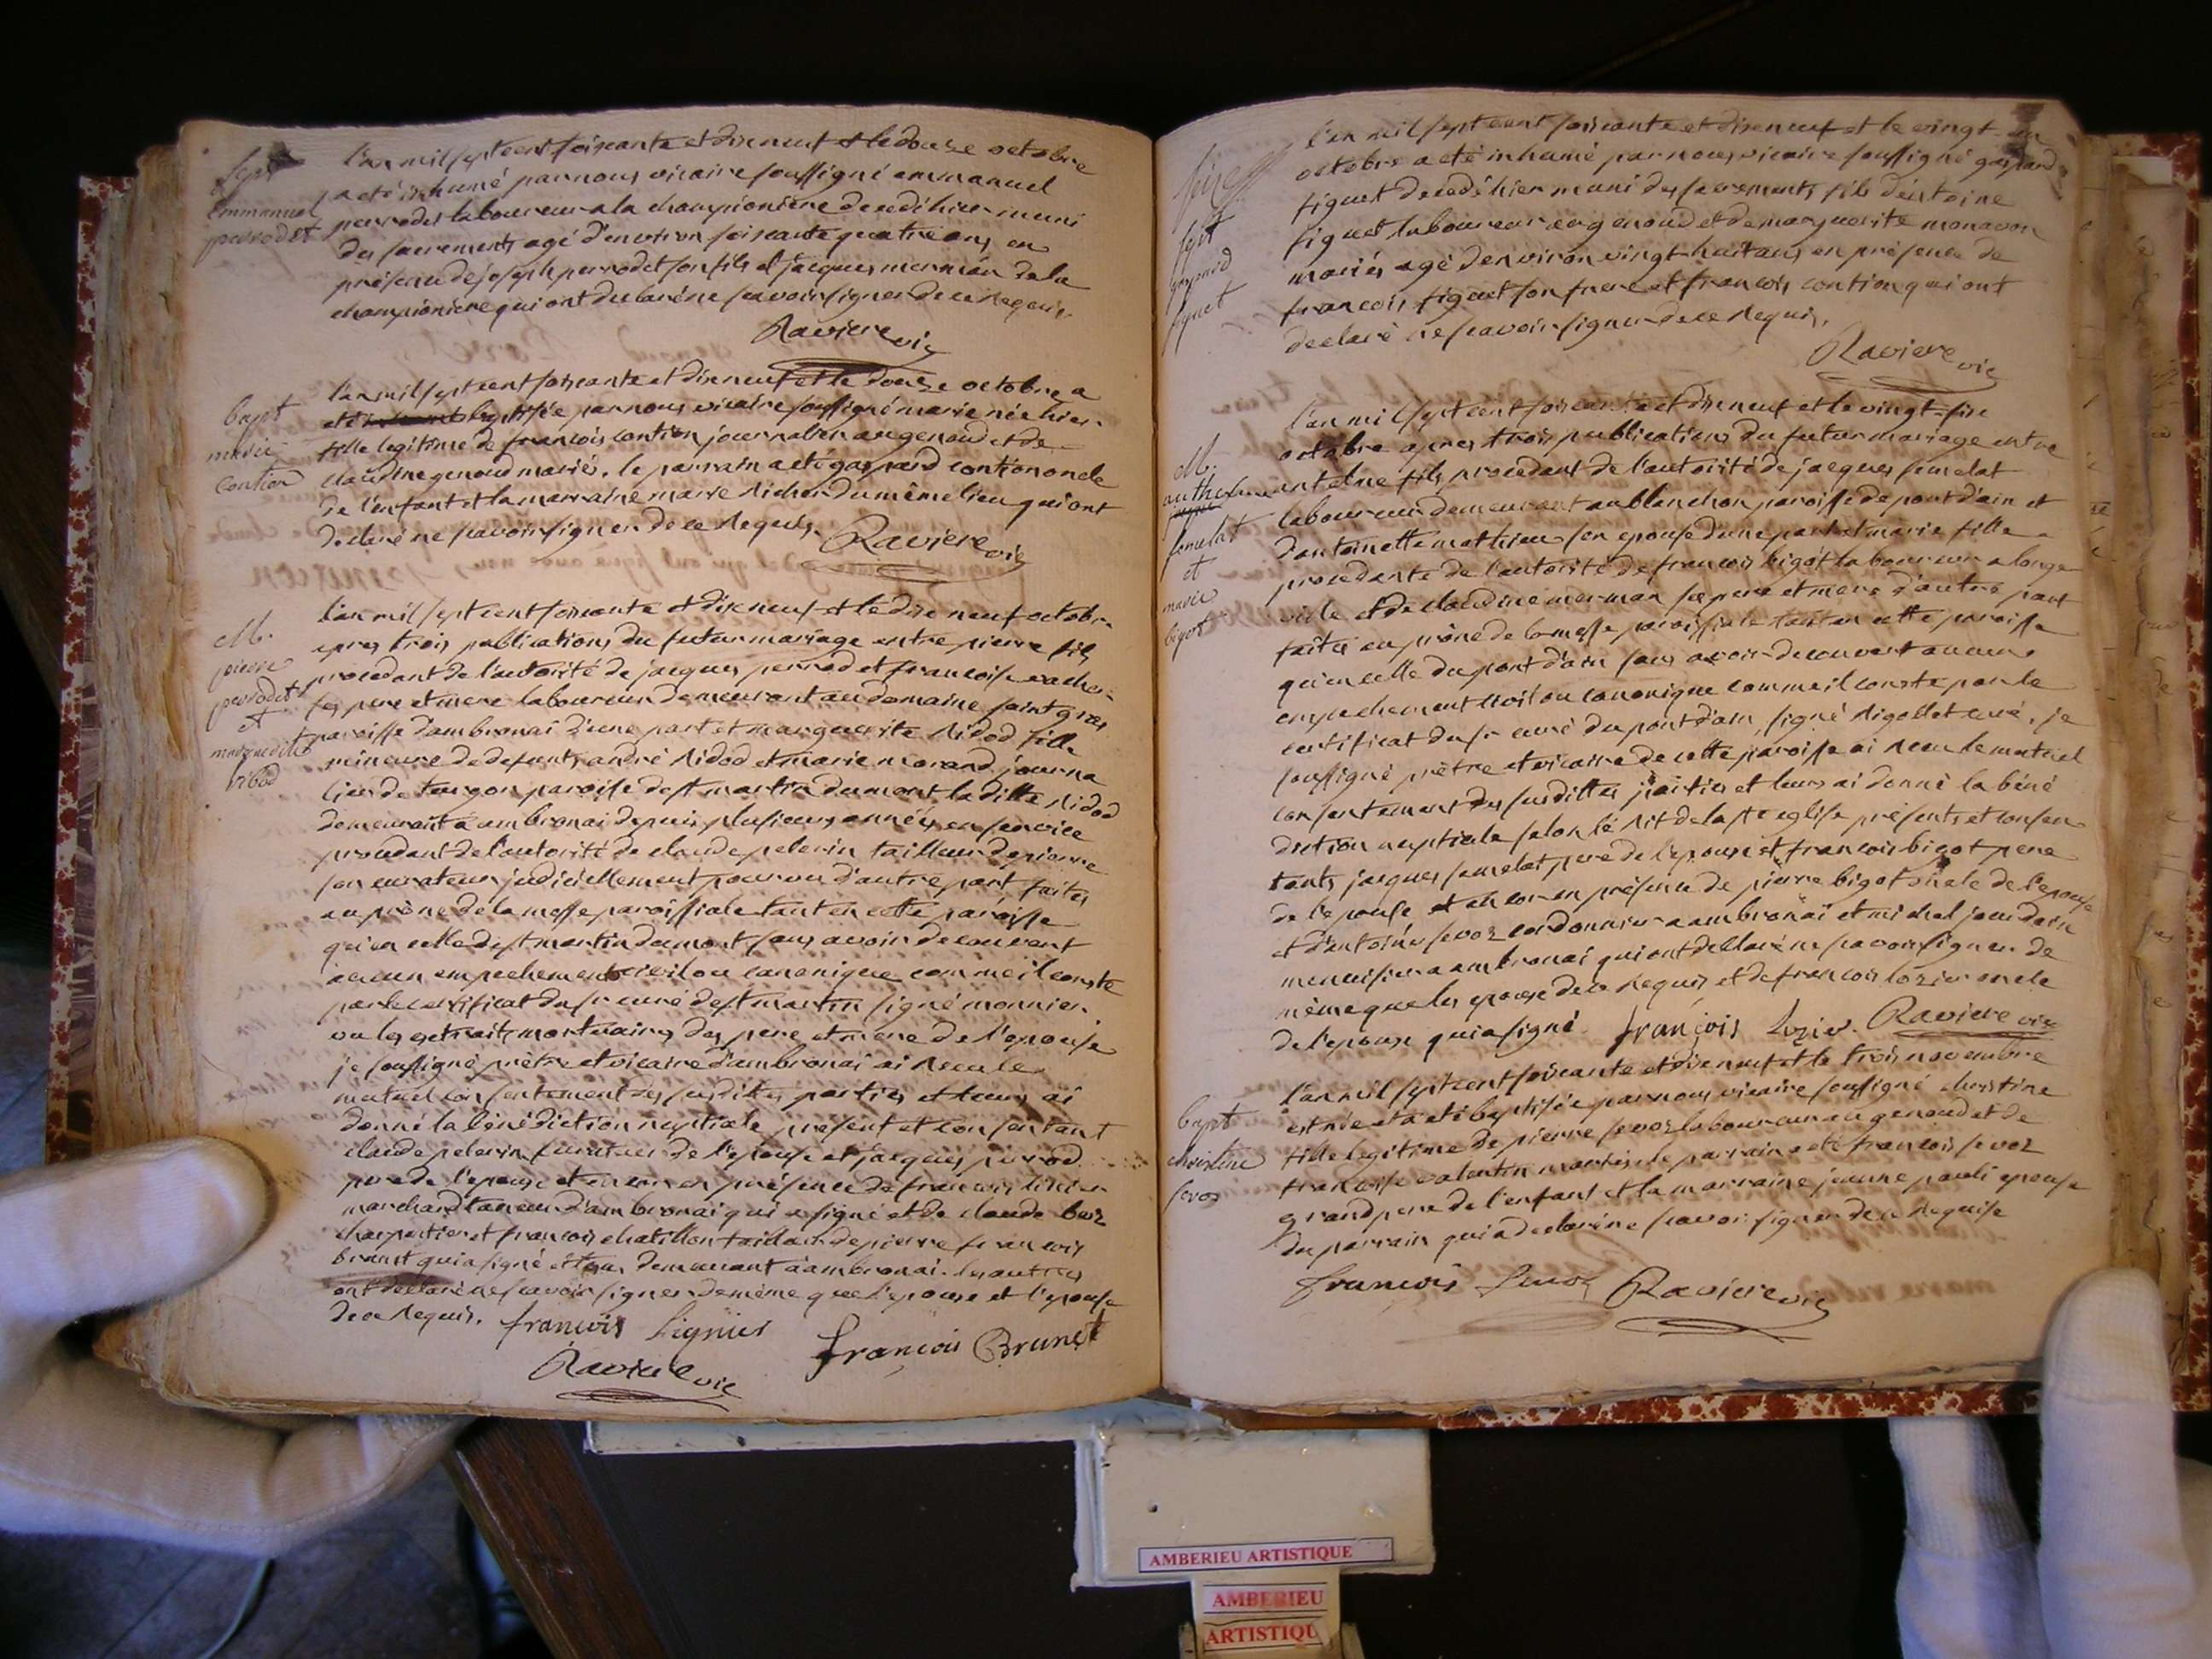 Sept
Emmanuel
perrodet
l'an mil sept cent soixante et dix neuf et le douze octobre
a été inhumé par nous vicaire soussigné emmanuel
perrodet laboureur a la championiere decedé hier muni
des sacrements agé d'environ soixante quatre ans en
présence de joseph perrodet son fils et jacques merman de la
championiere qui ont declaré ne scavoir signer de ce requis.
Raviere vic
bapt
marie
contion
l'an mil sept cent soixante et dix neuf et le douze octobre a
eté baptisée par nous vicaire soussigné marie née hier
fille legitime de francois contion journalier au genoud et de
claudine genoud mariés. le parrain a eté gaspard contion oncle
de l'enfant et la marraine marie richer du même lieu qui ont
declaré ne scavoir signer de ce requis. Raviere vic
M.
pierre
perrodet
et
marguerite
ribod
l'an mil sept cent soixante et dix neuf et le dix neuf octobre
apres trois publications du futur mariage entre pierre fils
procedant de l'autorité de jacques perrod et francoise
ses pere et mere laboureur demeurant au domaine saint
paroisse d'ambronai d'une part et marguerite ribod fille
mineure de defunts andré ribod et marie morand journa
lier de paroisse de st martin du mont la ditte ribod
demeurant a ambronai depuis plusieurs années en service
procedant de l'autorité de claude pelerin tailleur de pierre
son curateur judiciellement pourvu d'autre part faites
au prône de la messe paroissiale tant en cette paroisse
qu'en celle de st martin du mont sans avoir decouvert
aucun empechement civil ou canonique comme il conste
par le certificat du sr curé de st martin signé monnier
vu les extraits mortuaires des pere et mere de l'epouse
je soussigné prêtre et vicaire d'ambronai ai recu le
mutuel consentement des susdittes parties et leurs ai
donné la bénédiction nuptiale présent et consentant
claude pelerin curateur de l'epouse et jacques perrod
pere de l'epoux et encor en présence de francois linier
marchand taneur d'ambronai qui a signé et de claude
charpentier et francois chatillon tailleur de pierre francois
brunet qui a signé et tous demeurant a ambronai. les autres
ont declaré ne scavoir signer de même que l'epoux et l'epouse
de ce requis. françois Lignier françois Brunet
Raviere vic
seize
sept
gaspard
figuet
l'an mil sept cent soixante et dix neuf et le vingt-un
octobre a eté inhumé par nous vicaire soussigné gaspard
figuet decedé hier muni des sacrements fils d'antoine
figuet laboureur au genoud et de marguerite monavon
mariés agé d'environ vingt-huit ans en présence de
francois figuet son frere et francois contion qui ont
declaré ne scavoir signer de ce requis.
Raviere vic
M.
anthelme
semelat
et
marie
bigot
l'an mil sept cent soixante et dix neuf et le vingt-six
octobre apres trois publications du futur mariage entre
antelme fils procedant de l'autorité de jacques semelat
laboureur demeurant au blanchon paroisse de pont d'ain et
d'antoinette mathieu son epouse d'une part et marie fille
procedante de l'autorité de francois bigot laboureur a longe
ville et de claudine merman ses pere et mere d'autre part
faites au prône de la messe paroissiale tant en cette paroisse
qu'en celle du pont d'ain sans avoir decouvert aucun
empechement civil ou canonique comme il conste par le
certificat du sr curé du pont d'ain signé rigollet curé, je
soussigné prêtre et vicaire de cette paroisse ai recu le mutuel
consentement des susdittes parties et leurs ai donné la béné
diction nuptiale selon le rit de la ste eglise présents et consen
tants jacques semelat pere de l'epoux et francois bigot pere
de l'epouse et encor en présence de pierre bigot oncle de l'epouse
et d'antoine sevoz cordonnier a ambronai et michel jourdain
menuisier a ambronai qui ont declaré ne scavoir signer de
même que les epoux de ce requis et de francois lozier oncle
de l'epoux qui a signé. françois lozier. Raviere vic
bapt
christine
sevoz
l'an mil sept cent soixante et dix neuf et le trois novembre
est née et a eté baptisée par nous vicaire soussigné christine
fille legitime de pierre sevoz laboureur au genoud et de
francoise valentin mariés. le parrain a eté francois sevoz
grand pere de l'enfant et la marraine jeanne pauli epouse
du parrain qui a declaré ne scavoir signer de ce requise
francois sevoz Raviere vic
AMBERIEU ARTISTIQUE
AMBERIEU
ARTISTIQU